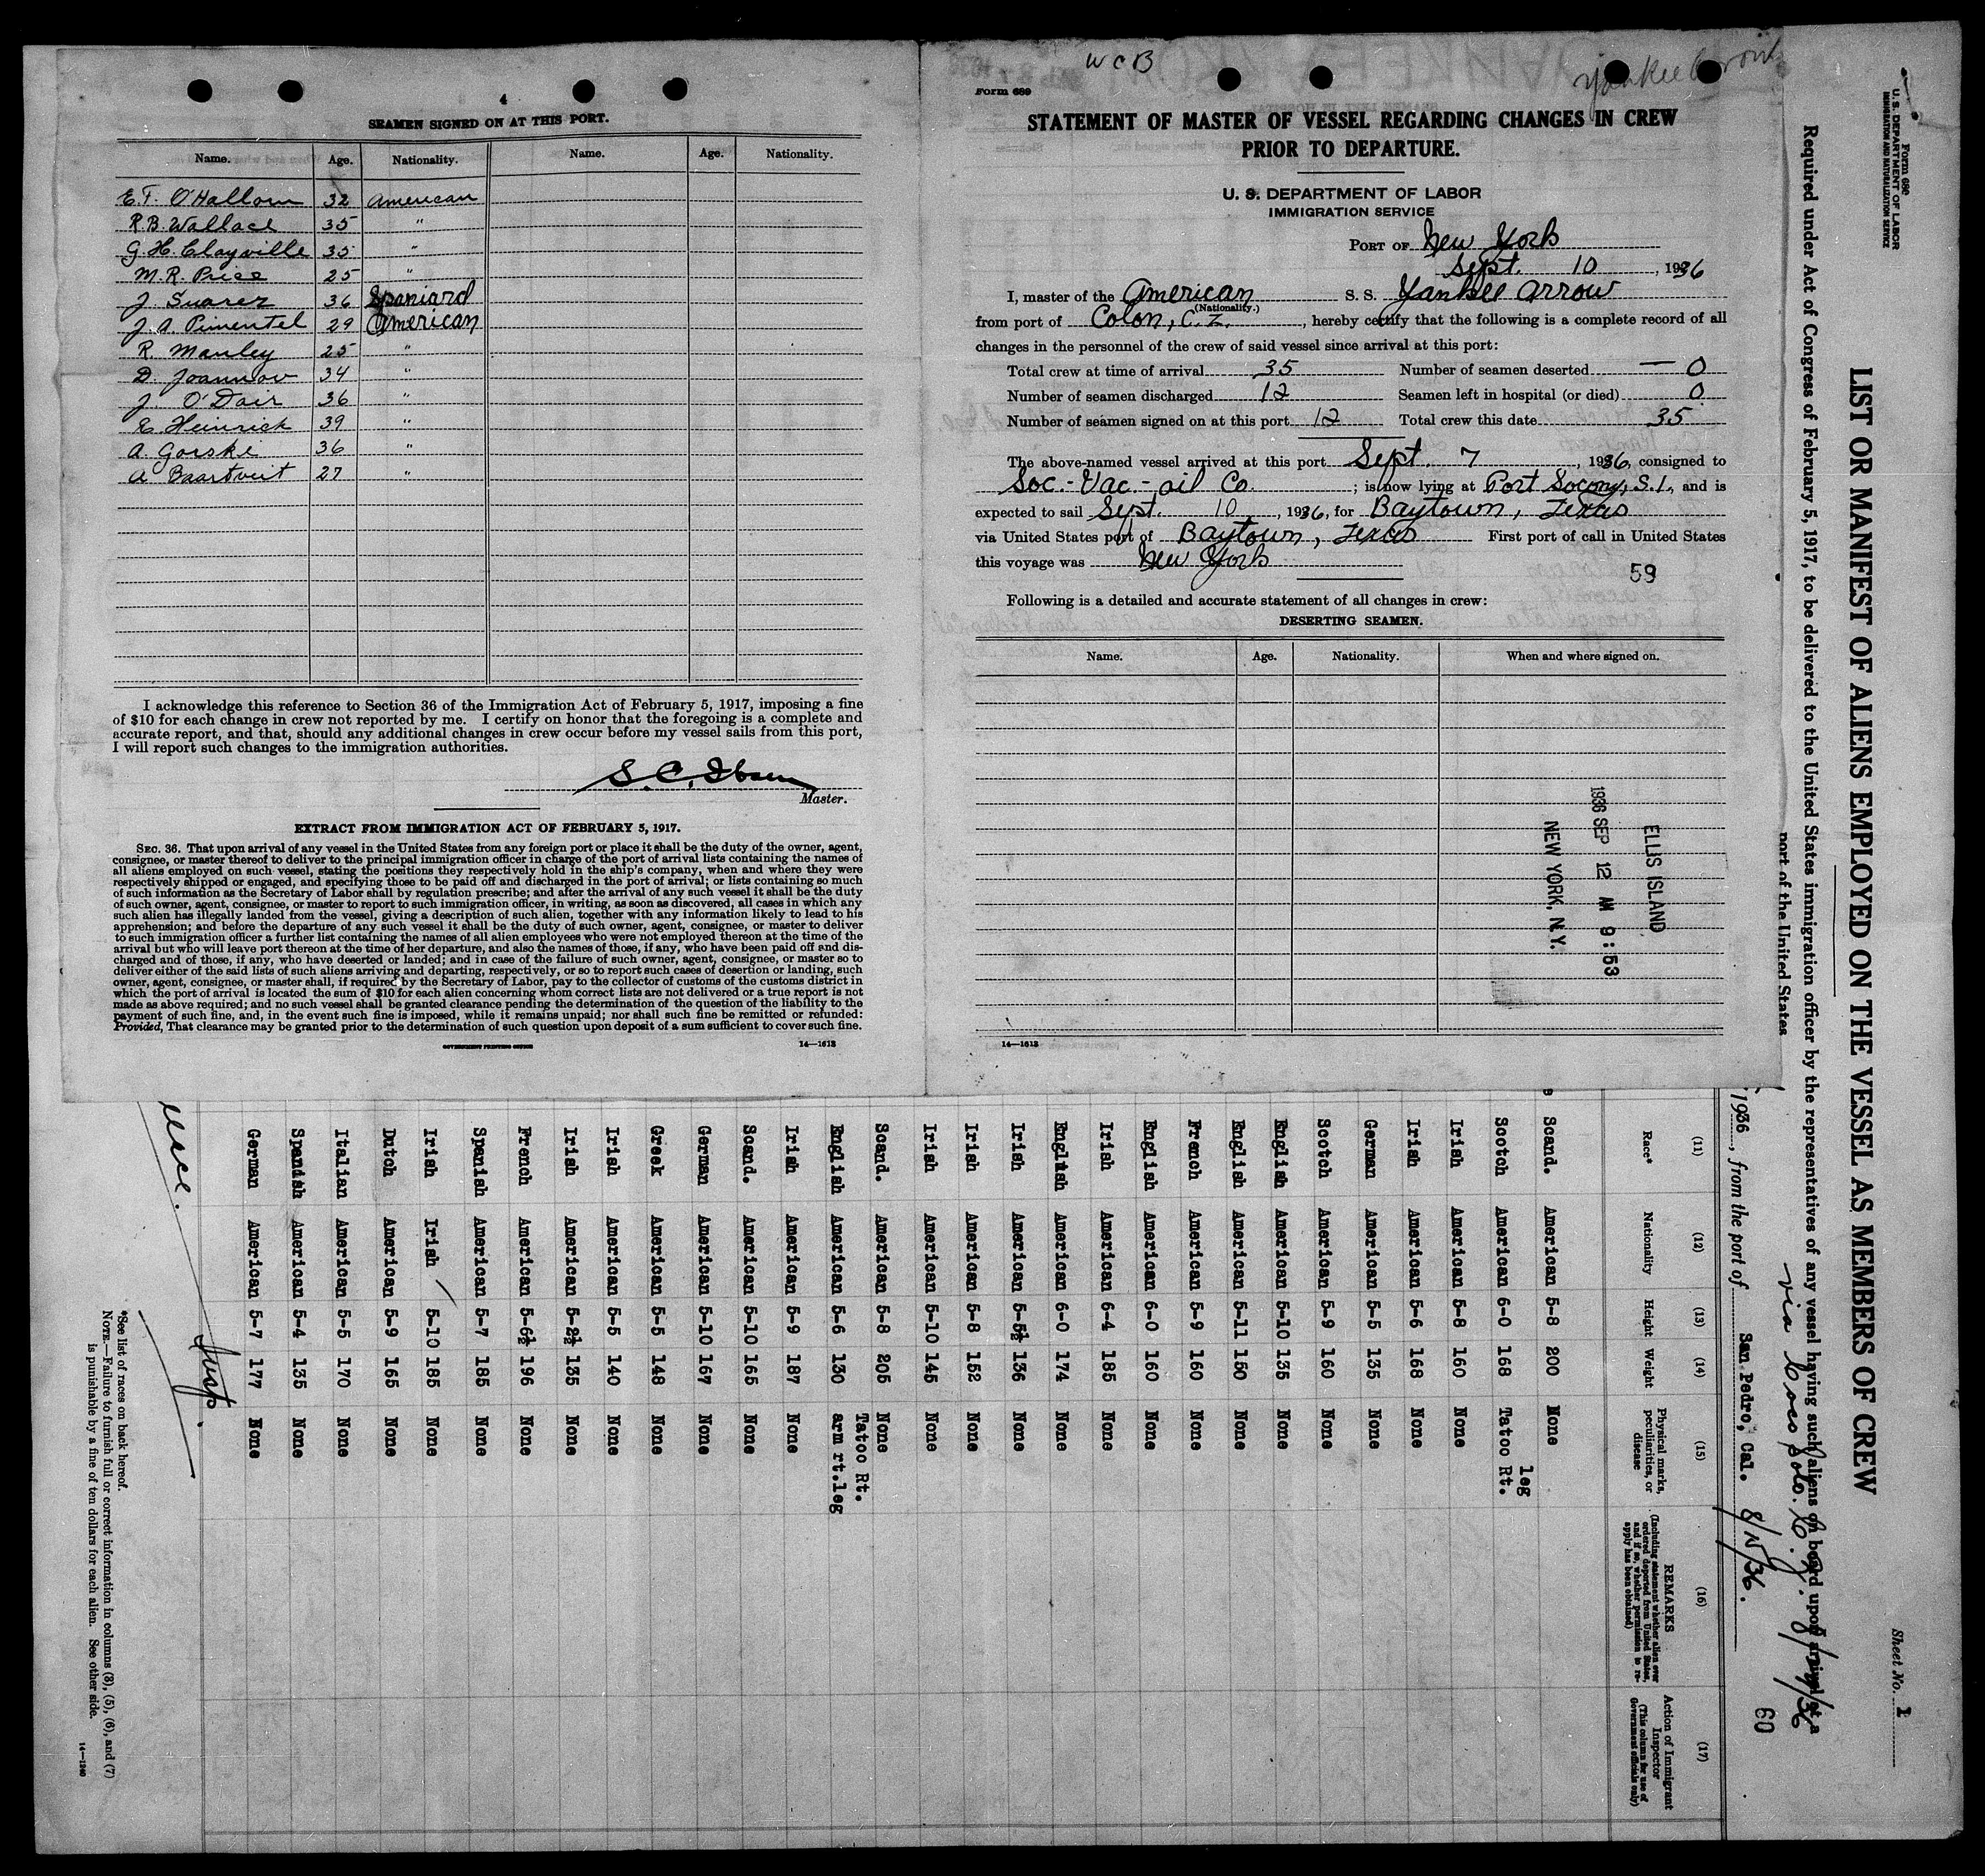 4
SEAMEN SIGNED ON AT THIS PORT.
Name. Age. Nationality. Name. Age. Nationality.
E.T. O'Halloran 32 American
R.B. Wallace 35 "
G.H. Clayville 35 "
M.R. Price 25 "
J. Suarez 36 Spaniard
J.A. Pimentel 29 American
R. Manley 25 "
D. Joannov 34 "
J. O'Dair 36 "
E. Heinrich 39 "
A. Gorski 36 "
A. Baartveit 27 "
I acknowledge this reference to Section 36 of the Immigration Act of February 5, 1917, imposing a fine
of $10 for each change in crew not reported by me. I certify on honor that the foregoing is a complete and
accurate report, and that, should any additional changes in crew occur before my vessel sails from this port,
I will report such changes to the immigration authorities.
S. C. Ibsen
Master.
EXTRACT FROM IMMIGRATION ACT OF FEBRUARY 5, 1917.
SEC. 36. That upon arrival of any vessel in the United States from any foreign port or place it shall be the duty of the owner, agent,
consignee, or master thereof to deliver to the principal immigration officer in charge of the port of arrival lists containing the names of
all aliens employed on such vessel, stating the positions they respectively hold in the ship's company, when and where they were
respectively shipped or engaged, and specifying those to be paid off and discharged in the port of arrival; or lists containing so much
of such information as the Secretary of Labor shall by regulation prescribe; and after the arrival of any such vessel it shall be the duty
of such owner, agent, consignee, or master to report to such immigration officer, in writing, as soon as discovered, all cases in which any
such alien has illegally landed from the vessel, giving a description of such alien, together with any information likely to lead to his
apprehension; and before the departure of any such vessel it shall be the duty of such owner, agent, consignee, or master to deliver
to such immigration officer a further list containing the names of all alien employees who were not employed thereon at the time of the
arrival but who will leave port thereon at the time of her departure, and also the names of those, if any, who have been paid off and dis-
charged and of those, if any, who have deserted or landed; and in case of the failure of such owner, agent, consignee, or master so to
deliver either of the said lists of such aliens arriving and departing, respectively, or so to report such cases of desertion or landing, such
owner, agent, consignee, or master shall, if required by the Secretary of Labor, pay to the collector of customs of the customs district in
which the port of arrival is located the sum of $10 for each alien concerning whom correct lists are not delivered or a true report is not
made as above required; and no such vessel shall be granted clearance pending the determination of the question of the liability to the
payment of such fine, and, in the event such fine is imposed, while it remains unpaid; nor shall such fine be remitted or refunded:
Provided, That clearance may be granted prior to the determination of such question upon deposit of a sum sufficient to cover such fine.
GOVERNMENT PRINTING OFFICE
14—1613
WCB
Yankee Arrow
Form 689
STATEMENT OF MASTER OF VESSEL REGARDING CHANGES IN CREW
PRIOR TO DEPARTURE.
U. S. DEPARTMENT OF LABOR
IMMIGRATION SERVICE
PORT OF New York
Sept. 10, 1936
I, master of the American S. S. Yankee Arrow
(Nationality.)
from port of Colon, C.Z., hereby certify that the following is a complete record of all
changes in the personnel of the crew of said vessel since arrival at this port:
Total crew at time of arrival 35 Number of seamen deserted — 0
Number of seamen discharged 12 Seamen left in hospital (or died) 0
Number of seamen signed on at this port 12 Total crew this date 35
The above-named vessel arrived at this port Sept. 7, 1936, consigned to
Soc.-Vac.-oil Co.; is now lying at Port Socony, S.I., and is
expected to sail Sept. 10, 1936, for Baytown, Texas
via United States port of Baytown, Texas First port of call in United States
this voyage was New York
59
Following is a detailed and accurate statement of all changes in crew:
DESERTING SEAMEN.
Name. Age. Nationality. When and where signed on.
ELLIS ISLAND
1936 SEP 12 AM 9:53
NEW YORK, N.Y.
14—1613
Form 680
U. S. DEPARTMENT OF LABOR
IMMIGRATION AND NATURALIZATION SERVICE
Sheet No. 1
LIST OR MANIFEST OF ALIENS EMPLOYED ON THE VESSEL AS MEMBERS OF CREW
Required under Act of Congress of February 5, 1917, to be delivered to the United States immigration officer by the representatives of any vessel having such aliens on board upon arrival at a
port of the United States
via Coco Solo. C.Z. 8/ /36
60
1936, from the port of San Pedro, Cal. 8/15/36.
(11) (12) (13) (14) (15) (16) (17)
Race* Nationality Height Weight Physical marks, peculiarities, or disease REMARKS (Including statement whether alien ever ordered deported from United States, and if so, whether permission to reapply has been obtained) Action of Immigrant Inspector (This column for use of Government officials only)
Scand. American 5-8 200 None
Scotch American 6-0 168 Tatoo Rt. leg
Irish American 5-8 160 None
Irish American 5-6 168 None
German American 5-5 135 None
Scotch American 5-9 160 None
English American 5-10 135 None
English American 5-11 150 None
French American 5-9 160 None
English American 6-0 160 None
Irish American 6-4 185 None
English American 6-0 174 None
Irish American 5-5½ 136 None
Irish American 5-8 152 None
Irish American 5-10 145 None
Scand. American 5-8 205 None
English American 5-6 130 Tatoo Rt. arm rt.leg
Irish American 5-9 187 None
Scand. American 5-10 165 None
German American 5-10 167 None
Greek American 5-5 148 None
Irish American 5-5 140 None
Irish American 5-2½ 135 None
French American 5-6½ 196 None
Spanish American 5-7 185 None
Irish Irish 5-10 185 None
Dutch American 5-9 165 None
Italian American 5-5 170 None
Spanish American 5-4 135 None
German American 5-7 177 None
Insp.
*See list of races on back hereof.
NOTE.—Failure to furnish full or correct information in columns (3), (5), (6), and (7)
is punishable by a fine of ten dollars for each alien. See other side.
14—1240